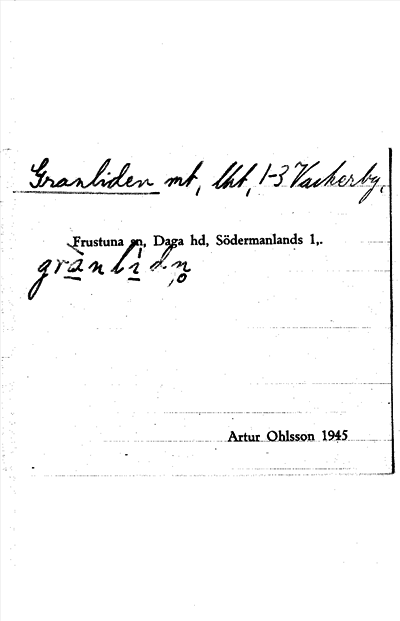 Granliden mt, lht, 1-3 Vackerby,
Frustuna sn, Daga hd, Södermanlands l,.
grànlìdn̥
Artur Ohlsson 1945